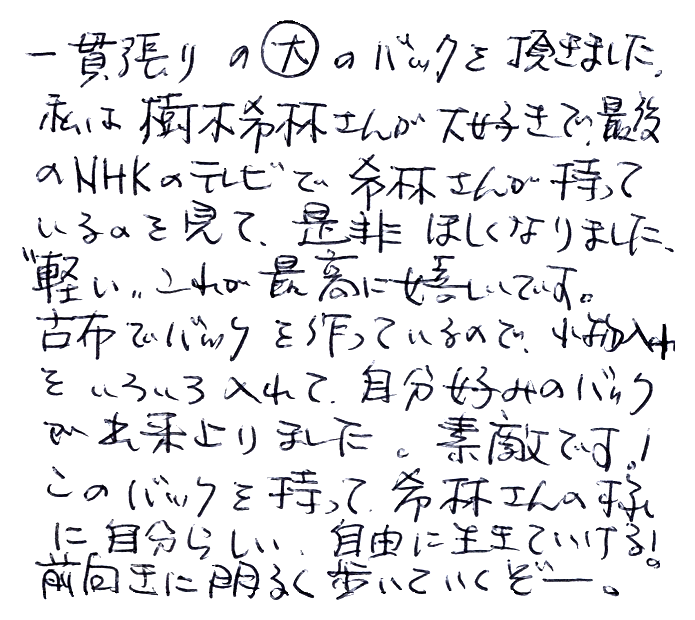 一貫張りの大のバックを頂きました。
私は樹木希林さんが大好きで、最後
のNHKのテレビで希林さんが持って
いるのを見て、是非ほしくなりました、
"軽い〟これが最高に嬉しいです。
古布でバックを作っているので、小物入れ
をいろいろ入れて、自分好みのバック
が出来上りました。素敵です!
このバックを持って、希林さんの様
に自分らしい、自由に生きていける!
前向きに明るく歩いていくぞー。